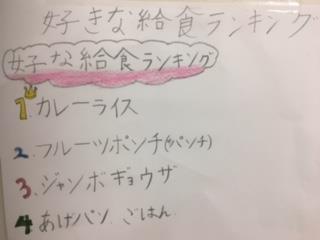 好きな給食ランキング
好きな給食ランキング
1.カレーライス
2.フルーツポンチ(パンチ)
3.ジャンボギョウザ
4.あげパン ごはん